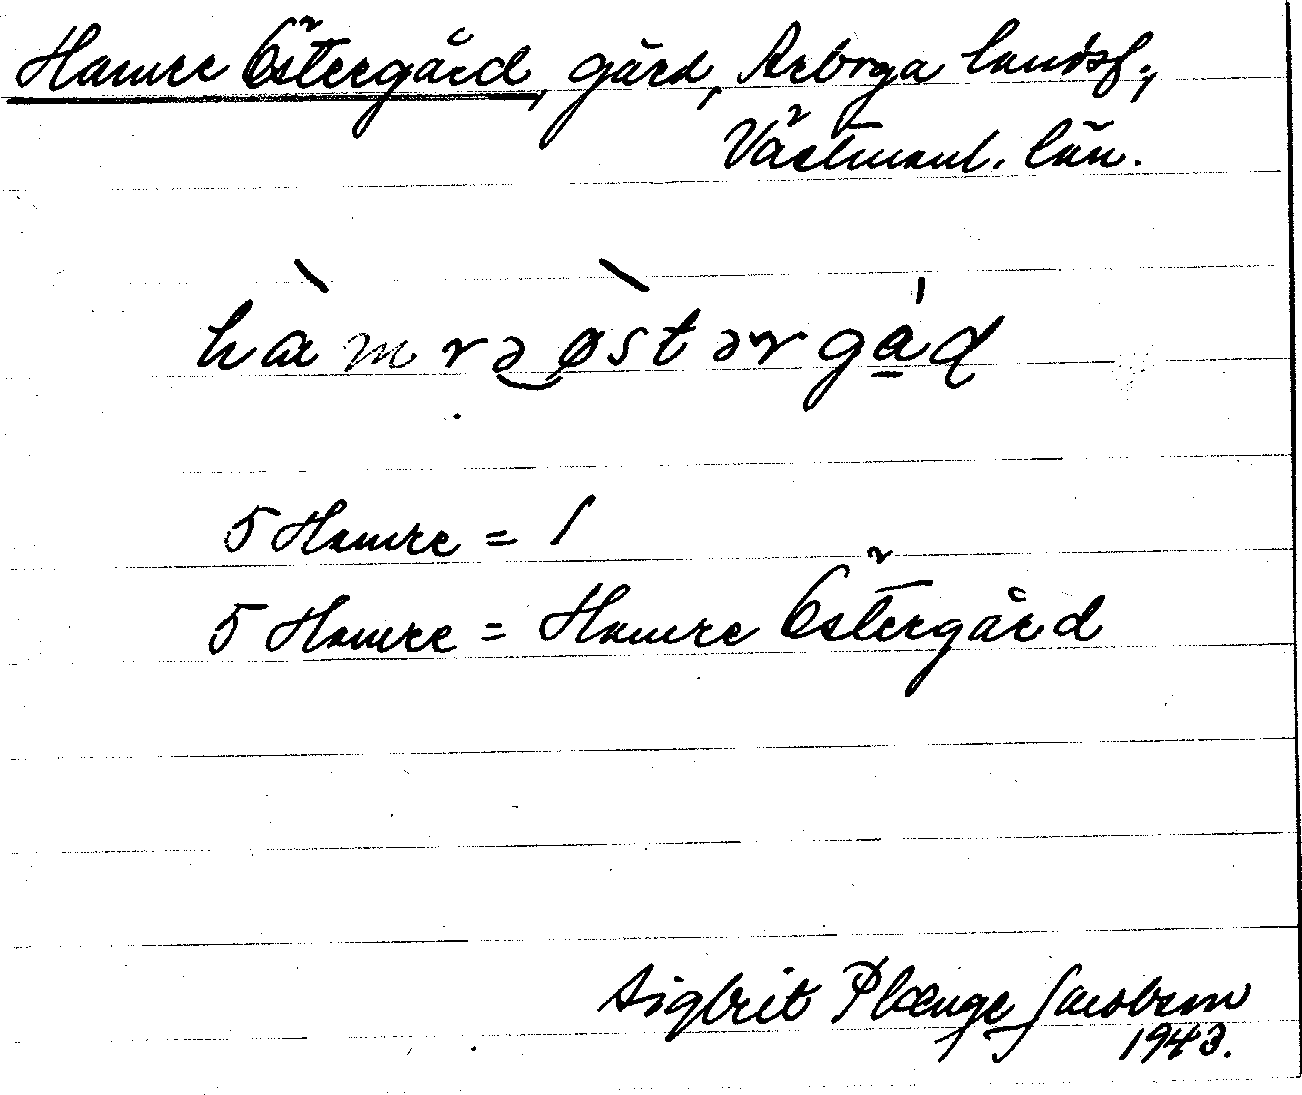 Hamre Östergård, gård, Arborga landsf.,
Västmanl. län.
hàmrə‿østərgåd
5 Hamre = 1
5 Hamre = Hamre Östergård
Sigbrit Plænge Jacobson
1943.